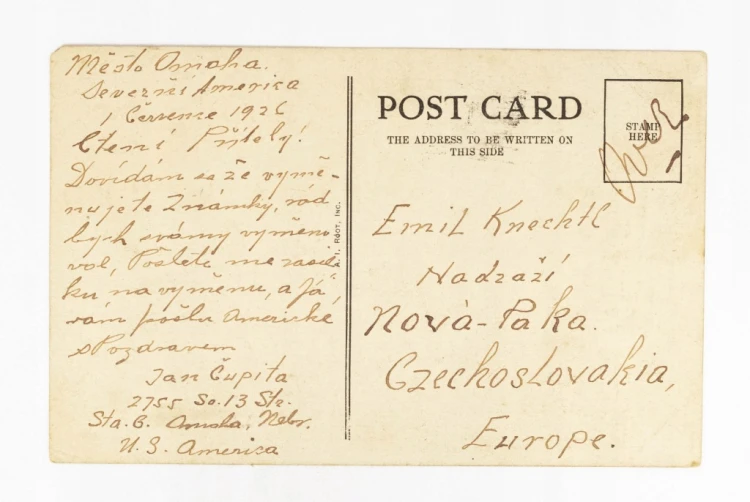 Město Omaha.
Severní America
1 Července 1926
Ctení Přítelý!
Dovídám se že vymě-
nujete Známky, rád
bych svámy vyměno
val, Pošlete me zasil
ku na vyměnu, a Já
vám pošlu Americké
s Pozdravem
Jan Čupita
2755 So. 13 Str.
Sta. B. Omaha, Nebr.
U. S. America
I. ROOT, INC.
POST CARD
THE ADDRESS TO BE WRITTEN ON
THIS SIDE
STAMP
HERE
Emil Knechtl
Nadzaží
Nová-Paka.
Czechoslovakia,
Europe.